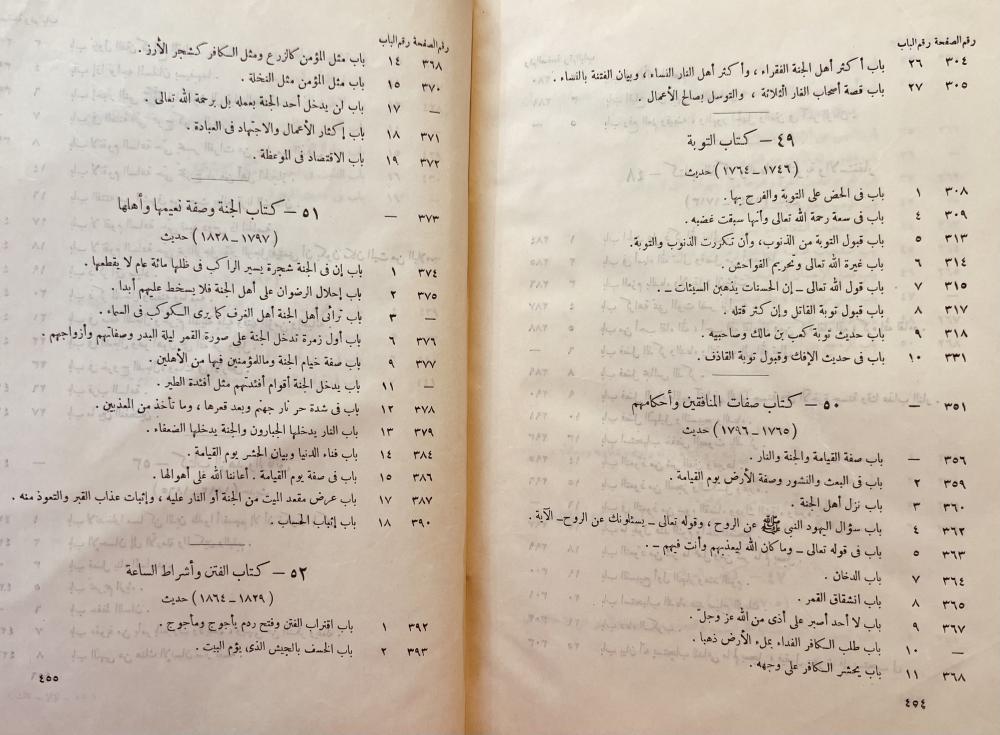 رقم الصفحة رقم الباب
٣٠٤ ٢٦ باب أكثر أهل الجنة الفقراء ، وأكثر أهل النار النساء ، وبيان الفتنة بالنساء .
٣٠٥ ٢٧ باب قصة أصحاب الغار الثلاثة ، والتوسل بصالح الأعمال .
٤٩ – كتاب التوبة
(١٧٤٦ – ١٧٦٤) حديث
٣٠٨ ١ باب فى الحض على التوبة والفرح بها .
٣٠٩ ٤ باب فى سعة رحمة الله تعالى وأنها سبقت غضبه .
٣١٣ ٥ باب قبول التوبة من الذنوب، وأن تكررت الذنوب والتوبة.
٣١٤ ٦ باب غيرة الله تعالى وتحريم الفواحش .
٣١٥ ٧ باب قول الله تعالى – إن الحسنات يذهبن السيئات – .
٣١٧ ٨ باب قبول توبة القاتل وإن كثر قتله .
٣١٨ ٩ باب حديث توبة كعب بن مالك وصاحبيه .
٣٣١ ١٠ باب فى حديث الإفك وقبول توبة القاذف .
٣٥١ — ٥٠ – كتاب صفات المنافقين وأحكامهم
(١٧٦٥ – ١٧٩٦) حديث
٣٥٦ — باب صفة القيامة والجنة والنار .
٣٥٩ ٢ باب فى البعث والنشور وصفة الأرض يوم القيامة .
٣٦٠ ٣ باب نزل أهل الجنة .
٣٦٢ ٤ باب سؤال اليهود النبى ﷺ عن الروح ، وقوله تعالى – يسئلونك عن الروح – الآية .
٣٦٣ ٥ باب فى قوله تعالى – وما كان الله ليعذبهم وأنت فيهم – .
٣٦٤ ٧ باب الدخان .
٣٦٥ ٨ باب انشقاق القمر .
٣٦٧ ٩ باب لا أحد أصبر على أذى من الله عز وجلّ .
— ١٠ باب طلب الكافر الفداء بملء الأرض ذهبا .
٣٦٨ ١١ باب يحشر الكافر على وجهه .
٤٥٤
رقم الصفحة رقم الباب
٣٦٨ ١٤ باب مثل المؤمن كالزرع ومثل الكافر كشجر الأرز .
٣٧٠ ١٥ باب مثل المؤمن مثل النخلة .
— ١٧ باب لن يدخل أحد الجنة بعمله بل برحمة الله تعالى .
٣٧١ ١٨ باب إكثار الأعمال والاجتهاد فى العبادة .
٣٧٢ ١٩ باب الاقتصاد فى الموعظة .
٣٧٣ — ٥١ – كتاب الجنة وصفة نعيمها وأهلها
(١٧٩٧ – ١٨٢٨) حديث
٣٧٤ ١ باب إن فى الجنة شجرة يسير الراكب فى ظلها مائة عام لا يقطعها .
٣٧٥ ٢ باب إحلال الرضوان على أهل الجنة فلا يسخط عليهم أبدا .
— ٣ باب ترائى أهل الجنة أهل الغرف كما يرى الكوكب فى السماء .
٣٧٦ ٦ باب أول زمرة تدخل الجنة على صورة القمر ليلة البدر وصفاتهم وأزواجهم .
٣٧٧ ٩ باب صفة خيام الجنة وما للمؤمنين فيها من الأهلين .
— ١١ باب يدخل الجنة أقوام أفئدتهم مثل أفئدة الطير .
٣٧٨ ١٢ باب فى شدة حر نار جهنم وبعد قعرها ، وما تأخذ من المعذبين .
٣٧٩ ١٣ باب النار يدخلها الجبارون والجنة يدخلها الضعفاء .
٣٨٤ ١٤ باب فناء الدنيا وبيان الحشر يوم القيامة .
٣٨٦ ١٥ باب فى صفة يوم القيامة . أعاننا الله على أهوالها .
٣٨٧ ١٧ باب عرض مقعد الميت من الجنة أو النار عليه ، وإثبات عذاب القبر والتعوذ منه .
٣٩٠ ١٨ باب إثبات الحساب .
٥٢ – كتاب الفتن وأشراط الساعة
(١٨٢٩ – ١٨٦٤) حديث
٣٩٢ ١ باب اقتراب الفتن وفتح ردم يأجوج ومأجوج .
٣٩٣ ٢ باب الخسف بالجيش الذى يؤم البيت .
٤٥٥